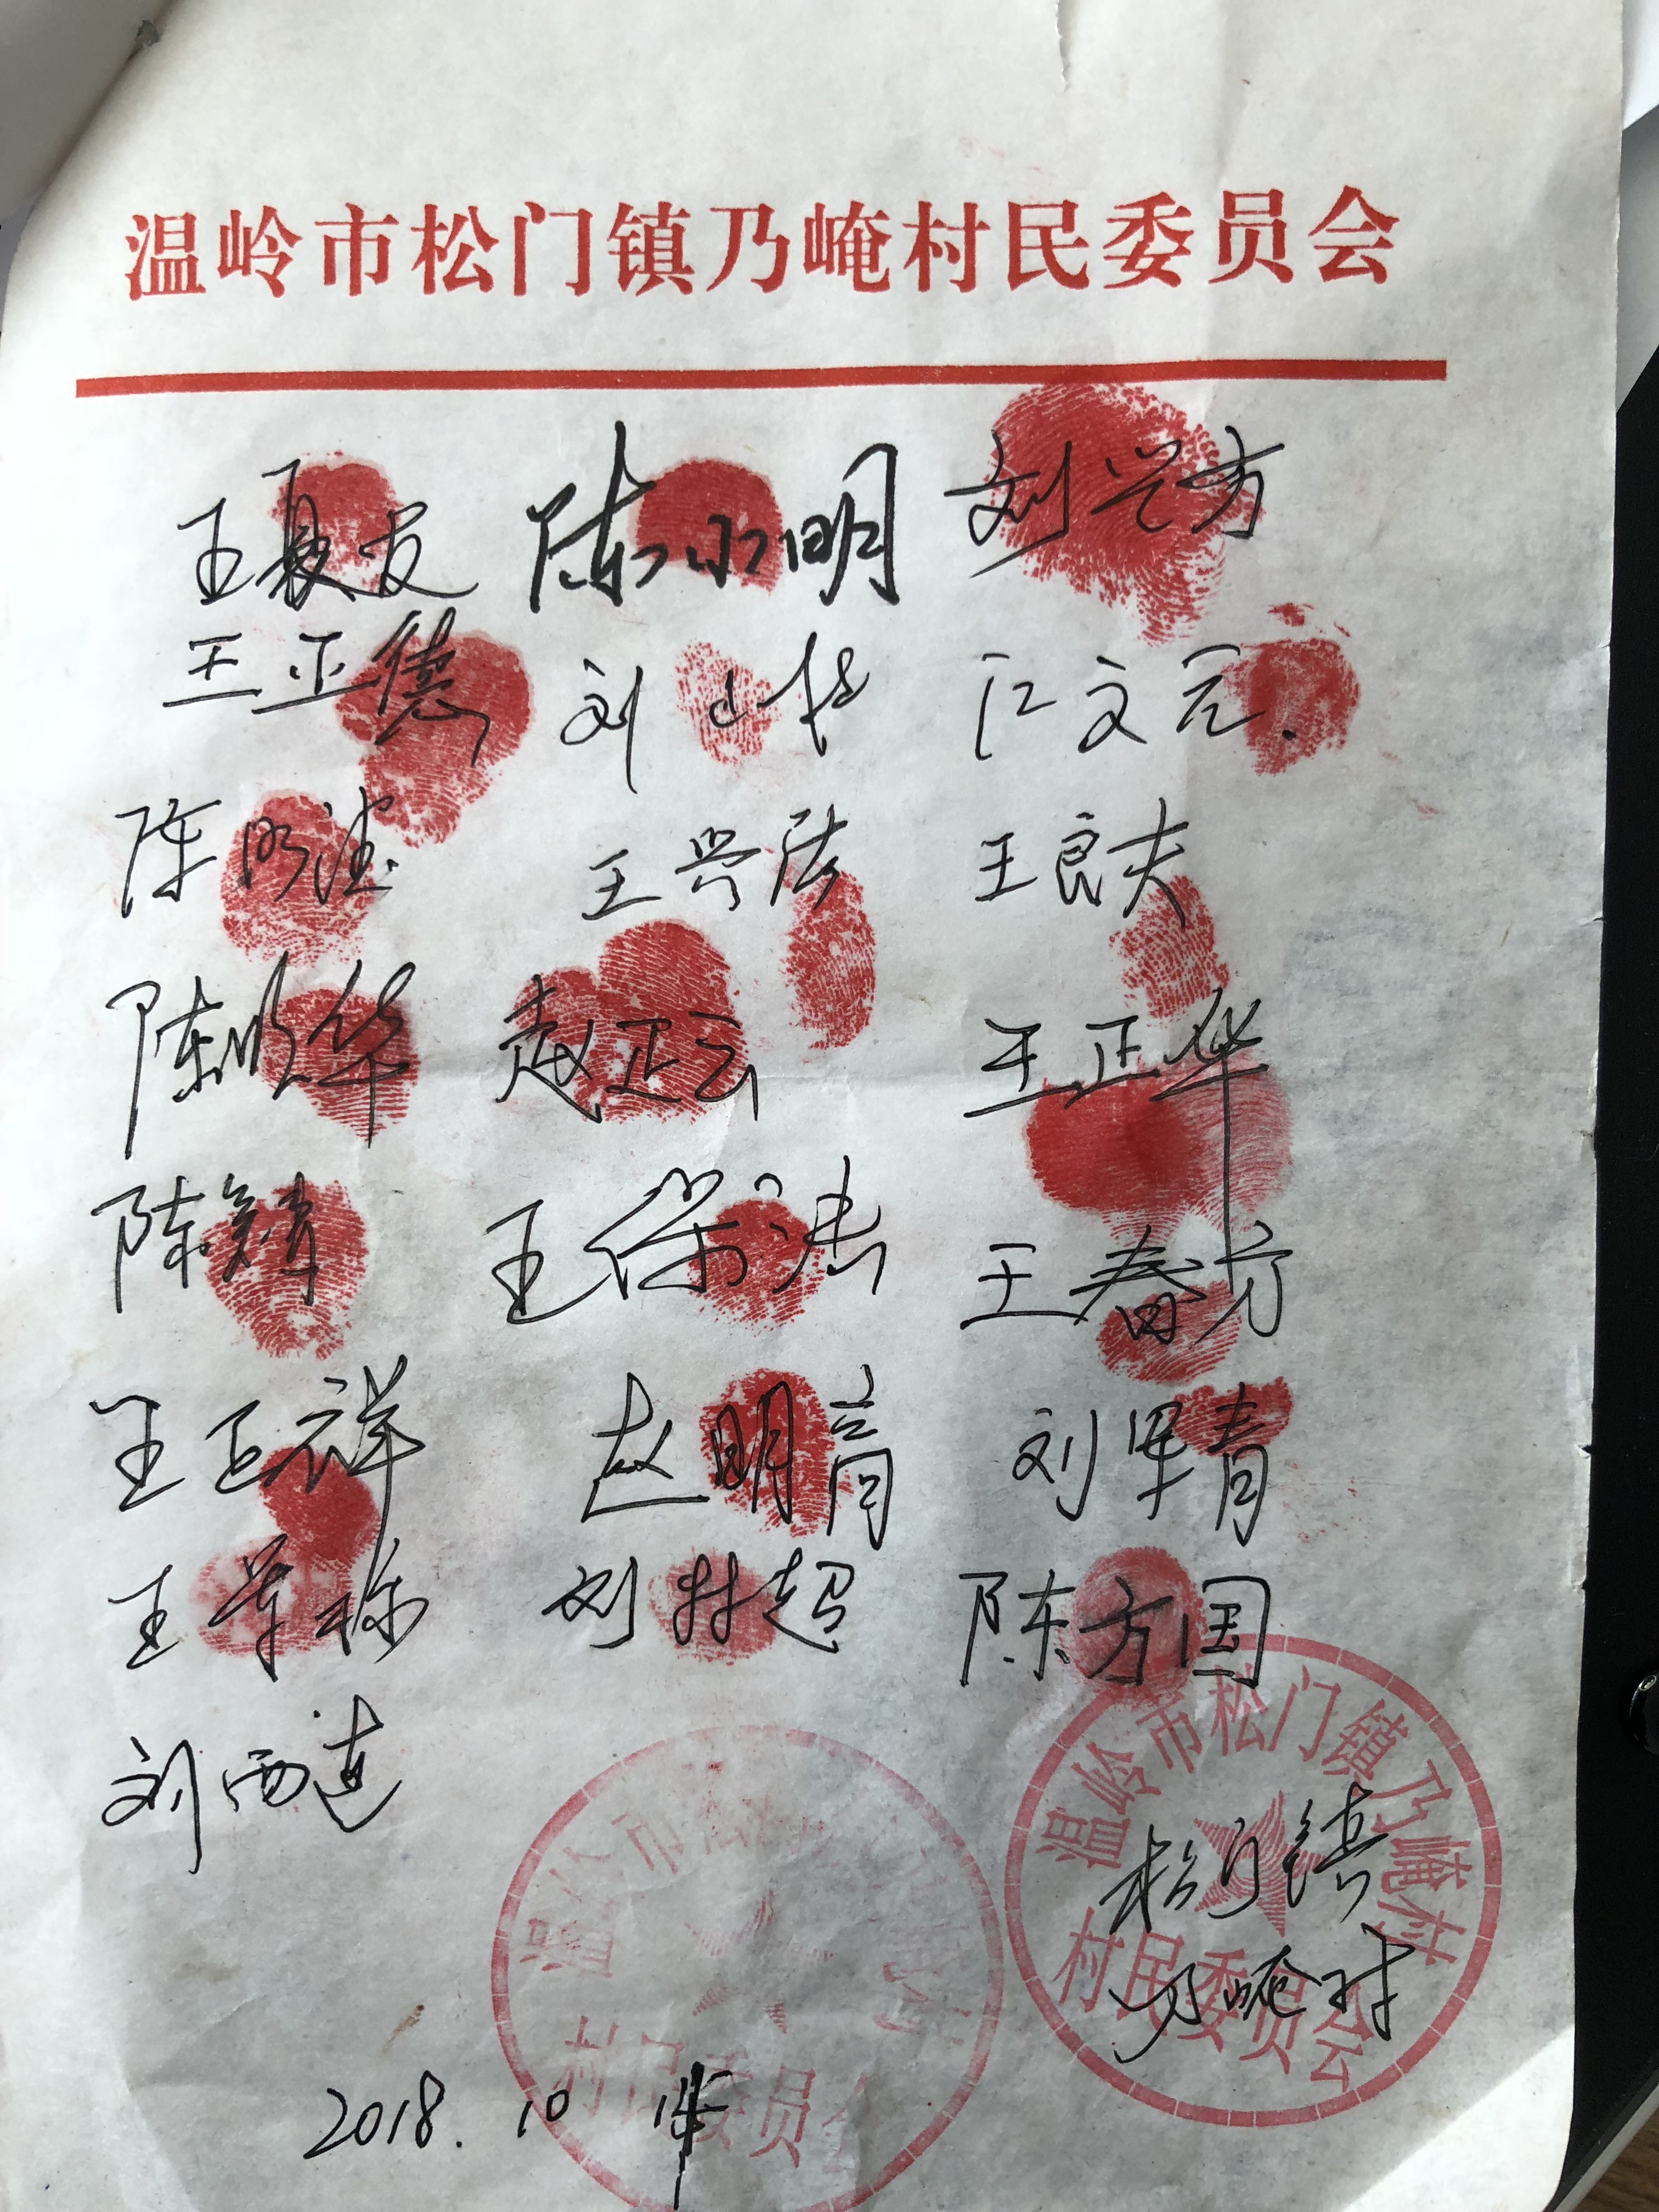 温岭市松门镇乃崦村民委员会
王夏友 陈永明 刘兴方
王正德 刘 江文元.
陈明 王兴法 王良夫
陈明华 赵正云 王正华
陈 王保法 王春方
王正祥 赵明 刘军青
王 刘林超 陈方国
刘西连
温岭市松门镇乃崦村
村民委员会
松门镇
乃崦村
温岭市松
村民委员会
2018. 10